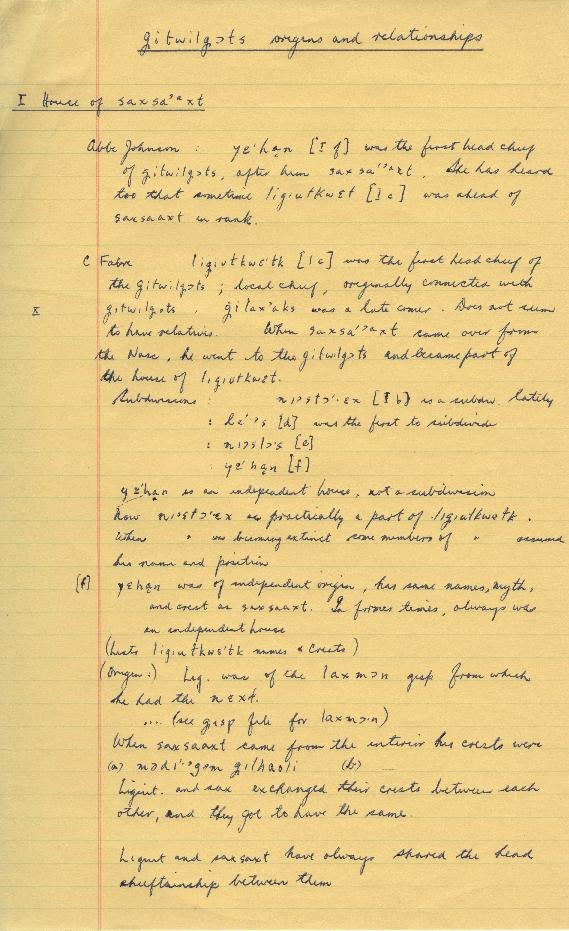 gitwilgɔts origins and relationships
I House of saxsa'ᵃxt
Abbe Johnson : ye'hạn [I f] was the first head chief
of gitwilgɔts, after him saxsa'ᵃxt. She has heard
too that sometime ligiutkwɛt [I c] was ahead of
saxsaaxt in rank.
C Fabre ligiutkwɛ'tk [I c] was the first head chief of
the gitwilgɔts ; local chief, originally connected with
X gitwilgɔts. gilax'aks was a late comer. Does not seem
to have relatives. When saxsa'ᵃxt came over from
the Nass, he went to the gitwilgɔts and became part of
the house of ligiutkwɛt.
Subdivisions : nɔstɔ'·ɛx [I b] is a subdiv. lately
: [d] was the first to subdivide
: [e]
: ye'hạn [f]
ye'hạn is an independent house, not a subdivision
Now nɔstɔ'ɛx is practically a part of ligiutkwɛtk.
When " was becoming extinct some members of " assumed
his name and position
[f] yɛhạn was of independent origin, has same names, myth,
and crest as saxsaaxt. In former times, always was
an independent house
(Lists ligiutkwɛ'tk names & Crests)
(Origin:) Lig. was of the laxmɔn gisp from which
he had the nɛxt.
... (see gisp file for laxmɔ·n)
When saxsaaxt came from the interior his crests were
(a) mɔdi'·gɛm gilhaoli (b)
Ligiut. and sax exchanged their crests between each
other, and they got to have the same.
Ligiut and saxsaxt have always shared the head
chieftainship between them